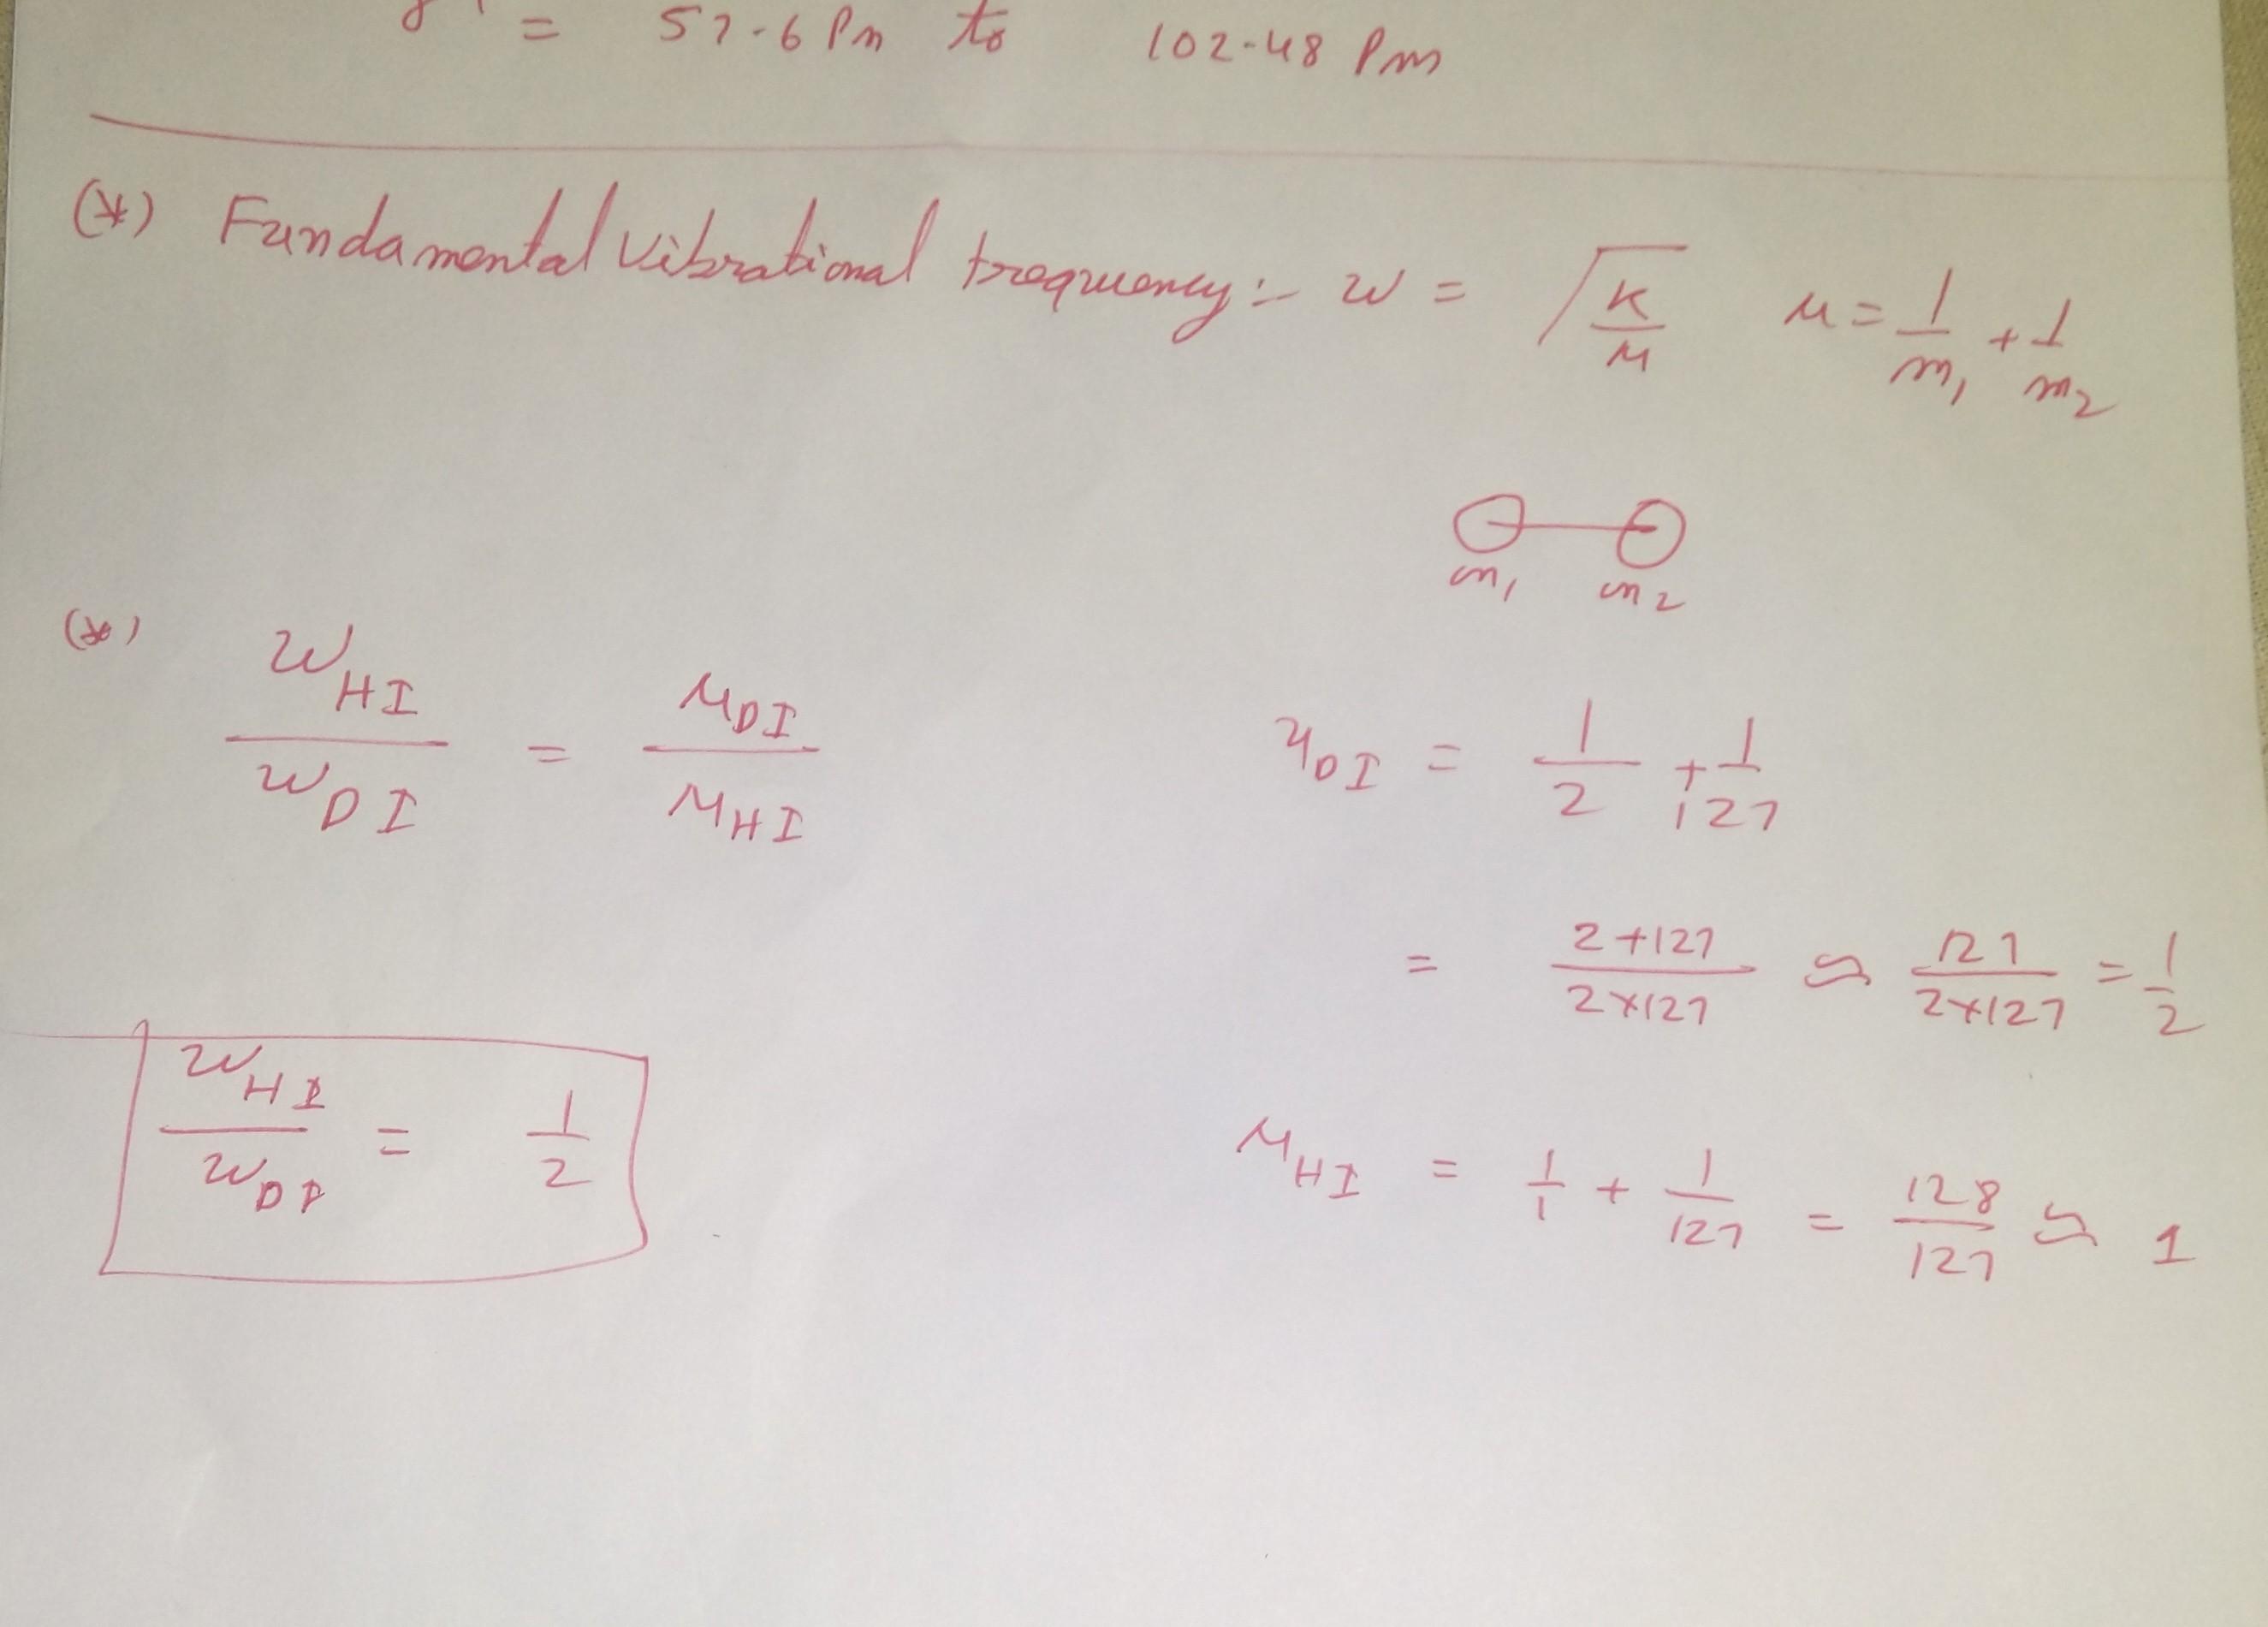 = 57.6 Pm to 102.48 Pm
(*) Fundamental vibrational frequency:- w = √(K/μ) μ = 1/m₁ + 1/m₂
m₁ m₂
(*) w_HI / w_DI = μ_DI / μ_HI
μ_DI = 1/2 + 1/127
= (2+127)/(2×127) ≈ 127/(2×127) = 1/2
w_HI / w_DI = 1/2
μ_HI = 1/1 + 1/127 = 128/127 ≈ 1